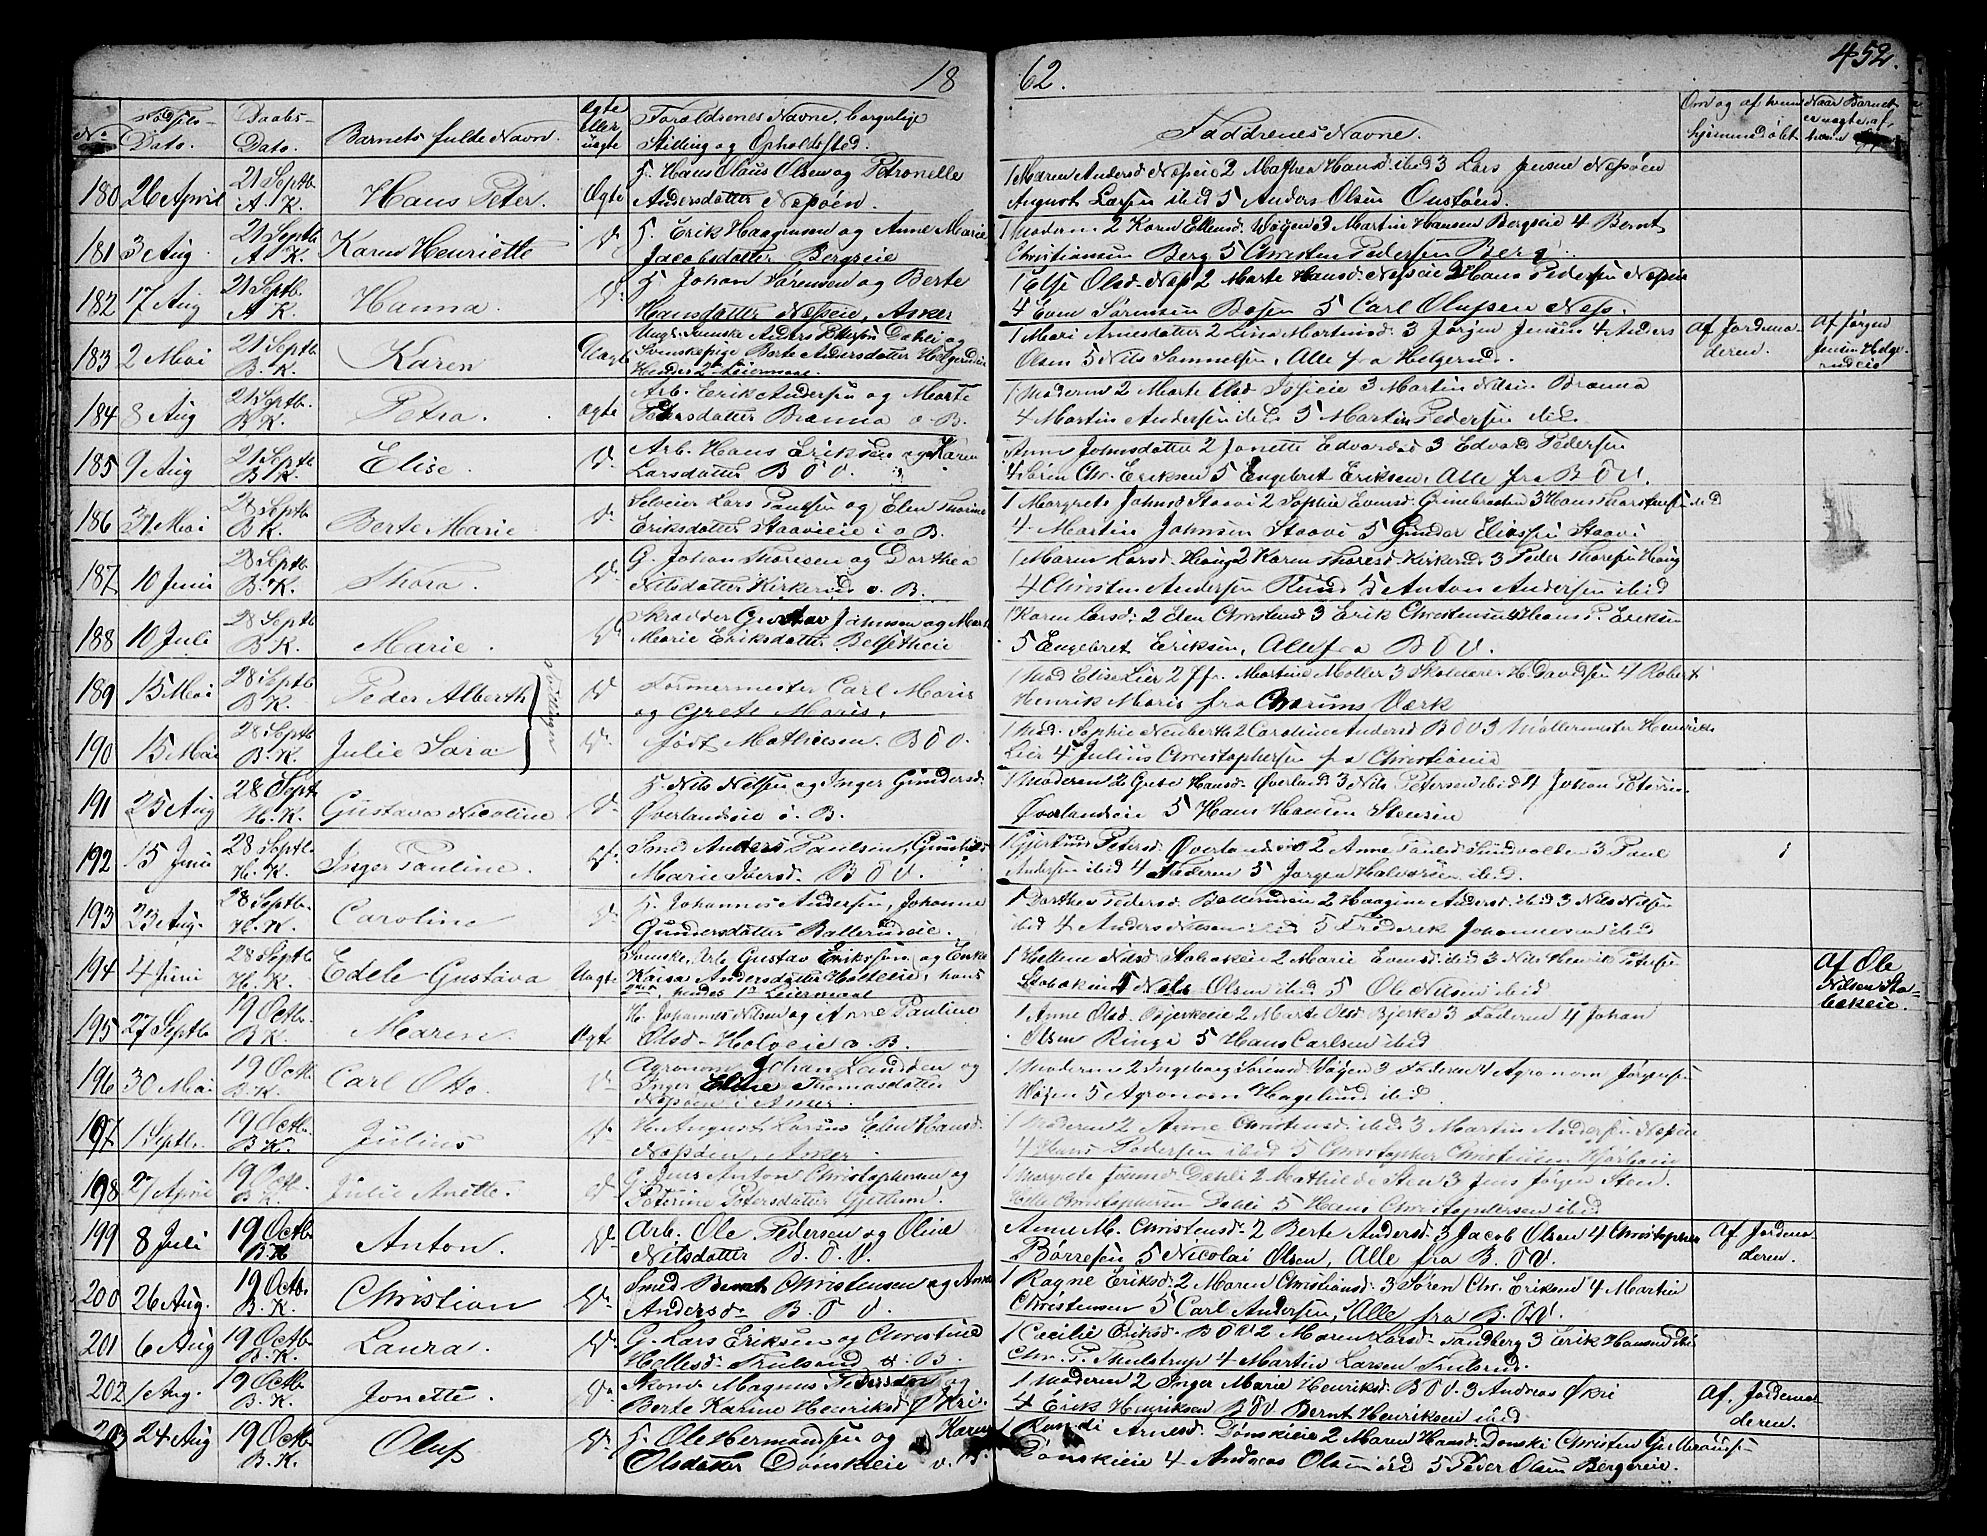 18 62. 452.
No. Fødsels- Dato. Daabs- Dato. Barnets fulde Navn. Ægte eller uægte Forældrenes Navne, borgerlige Stilling og Opholdssted. Faddrenes Navne. Om og af hvem hjemmedøbt Naar Barnet er uægte, af
180 26 April 21 Septb. A. K. Hans Peter. Ægte H. Hans Olaus Olsen og Petronelle
Andersdatter Næsøen. 1 Maren Andersd Næseie 2 Mathea Hansd. ibid 3 Lars Jensen Næsøen
August Larsen ibid 5 Anders Olsen
181 3 Aug. 21 Septb. A. K. Karen Henriette Do. Erik Haagensen og Anne Marie
Jacobsdatter Bergseie 1 Moderen 2 Karen Ellensd. 3 Martin Hansen Bergseie 4 Bernt
Christiansen Berg 5 Christen Pedersen Berg.
182 17 Aug 21 Septb. A. K. Hanna. Do. Johan Sørensen og Berte
Hansdatter Næseie, Asker 1 Else Olsd. Næs 2 Marte Hansd. Næseie 3 Hans Pedersen Næseie
4 Even Sørensen 5 Carl Olufsen Næs.
183 2 Mai 21 Septb. B. K. Karen Uægte Anders Dahli og
Svenskepige Berte Andersdatter
Hendes 2det Leiermaal 1 Mari Arnesdatter 2 Lina Martinsd. 3 Jørgen Jensen 4 Anders
Olsen 5 Nils Samuelsen, Alle fra Helgerud. Af Jordemoderen. Af Jørgen Jensen Helgerudeie
184 8 Aug 21 Septb. B. K. Petra. ægte Arb. Erik Andersen og Marte
Brænna v. B. 1 Moderen 2 Marte Olsd. 3 Martin Nilsen Brænna
4 Martin Andersen ibid 5 Martin Pedersen ibid
185 9 Aug 21 Septb. B. K. Elise. Do. Arb. Hans Eriksen og Karen
Larsdatter B O V. Anne Johnsdatter 2 Jonette Edvardsd 3 Edvard Pedersen
4 Søren Chr. Eriksen 5 Engebret Eriksen, Alle fra B O V.
186 31 Mai 28 Septb. B. K. Berte Marie Do. Selveier Lars Paulsen og Elen Thorine
Eriksdatter Staavieie i v. B. 1 Margrete Johnsd Staavi 2 Sophie Evensd. 3 Hans ibid
4 Martin Johnsen Staavi 5 Gunder Eliassen Staavi
187 10 Juni 28 Septb. B. K. Thora. Do. G. Johan Thoresen og Dorthea
Nilsdatter Kirkerud v. B. 1 Maren Larsd. Haug 2 Karen Thoresd. Kirkerud 3 Peder Thoresen Haug
4 Christen Andersen Rund 5 Anton Andersen ibid
188 10 Juli 28 Septb. B. K. Marie. Do. Skrædder Gustav Johnsen og Marte
Marie Eriksdatter 1 Karen Larsd. 2 Elen Christensd 3 Erik Christensen 4 Hans P. Eriksen
5 Engebret Eriksen, Alle fra B O V.
189 15 Mai 28 Septb. B. K. Peder Alberth Tvillinger Do. Formermester Carl Maris
og Grete Maris, 1 Mad Elise Lier 2 Jfr. Martine Møller 3 Skolelærer H. Davidsen 4 Robert
Henrik Maris fra Bærums Værk
190 15 Mai 28 Septb. B. K. Julie Sara Do. født Mathiesen. B O V. 1 Mad. Sophie Neuberth 2 Caroline Andersd B O V 3 Møllermester Henrik
Lier 4 Julius Christophersen fra Christiania
191 25 Aug 28 Septb H. K. Gustava Nicoline Do. H. Nils Nilsen og Inger Gundersd.
Øverlandseie v. B. 1 Moderen 2 Grete Hansd. Øverland 3 Nils Petersen ibid 4 Johan Petersen
Øverlandeie 5 Hans Hansen Stensen
192 15 Juni 28 Septb H. K. Inger Pauline. Do. Smed Anders Paulsen, Gunhild
Marie Iversd. B O V. 1 Gjertrud Petersd. Øverlandseie 2 Anne Paulsd. Sundvolden 3 Paul
Andersen ibid 4 Faderen 5 Jørgen Halvorsen ibid.
193 23 Aug. 28 Septb. H. K. Caroline Do. H. Johannes Andersen, Johanne
Gundersdatter Ballerudeie. 1 Dorthea Pedersd. Ballerudeie 2 Haagine Andersd. ibid 3 Nils Nilsen
ibid 4 Anders Nilsen ibid 5 Frederik Johannesen ibid
194 4 Juni 28 Septb H. K. Edele Gustava Uægte Svenske, Arb. Gustav Eriksson og Enke
Kaisa Andersdatter Holteie, hans
hendes 1ste Leiermaal 1 Hellene Nilsd. Stabækeie 2 Marie Evensd. ibid 3 Nils Henrik Petersen
Stabækeie 4 Nils Olsen ibid 5 Ole Nilsen ibid Af Ole Nilsen Stabækeie.
195 27 Septb 19 Octb. B. K. Maren. Ægte H. Johannes Nilsen og Anne Pauline
Olsd. Holveie v. B. 1 Anne Olsd. Bjerkeeie 2 Marte Olsd. Bjerke 3 Faderen 4 Johan
Olsen Ringi 5 Hans Carlsen ibid
196 30 Mai 19 Octb. B. K. Carl Otto. Do. Agronom Johan og
Inger Elise Thomasdatter
Næsøen i Asker. 1 Moderen 2 Ingeborg Sørensd 3 Faderen 4 Agronom Jørgensen
5 Agronom Hagelund ibid.
197 1 Septb. 19 Octb. B. K. Julius Do. H. August Larsen Elen Hansd.
Næsøen, Asker. 1 Moderen 2 Anne Christensd. ibid 3 Martin Andersen Næseie
4 Hans Pedersen ibid 5 Christopher Christensen
198 27 April 19 Octb. B. K. Julie Anette. Do. G. Jens Anton Christophersen og
Peterine Petersdatter Gjettum. 1 Margrete Jonsd Dahli 2 Mathilde Sten 3 Jens Jørgen Sten.
Helle Christophersen Dahli 5 Hans Christophersen ibid
199 8 Juli 19 Octb. B. K. Anton. Do. Arb. Ole Pedersen og Oline
Nilsdatter B. O. V. Anne M. Christensd. 2 Berte Andersd. 3 Jacob Olsen 4 Christopher
Børresen 5 Nicolai Olsen, Alle fra B. O V. Af Jordemoderen.
200 26 Aug. 19 Octb. B. K. Christian Do. Smed Bernt Christensen og Anne
Andersd. B. O V. 1 Ragne Eriksd. 2 Maren Christiansd. 3 Søren Chr. Eriksen 4 Martin
Christensen 5 Carl Andersen, Alle fra B. O V.
201 6 Aug 19 Octb. B. K. Laura. Do. G. Lars Eriksen og Christine
Hellesd. v. B. 1 Cecilie Eriksd. B O V 2 Maren Larsd. Sandberg 3 Erik Hansen ibid
Chr. P. Thulstrup 4 Martin Larsen
202 1 Aug. 19 Octb. B. K. Jonette. Do. Magnus Pedersen og
Berte Karine Henriksd Økri. 1 Moderen 2 Inger Marie Henriksd. B O V. 3 Andreas Økri
4 Erik Henriksen B O V Bernt Henriksen ibid. Af Jordemoderen.
203 24 Aug 19 Octb. B. K. Oluf Do. H. Ole Hermandsen og Karen
Olsdatter Dønskieie v. B. 1 Randi Arnesd. Dønskieie 2 Maren Hansd. Dønski Christen
Dønskieie 4 Andreas Olsen ibid 5 Peder Olsen Bergseie.